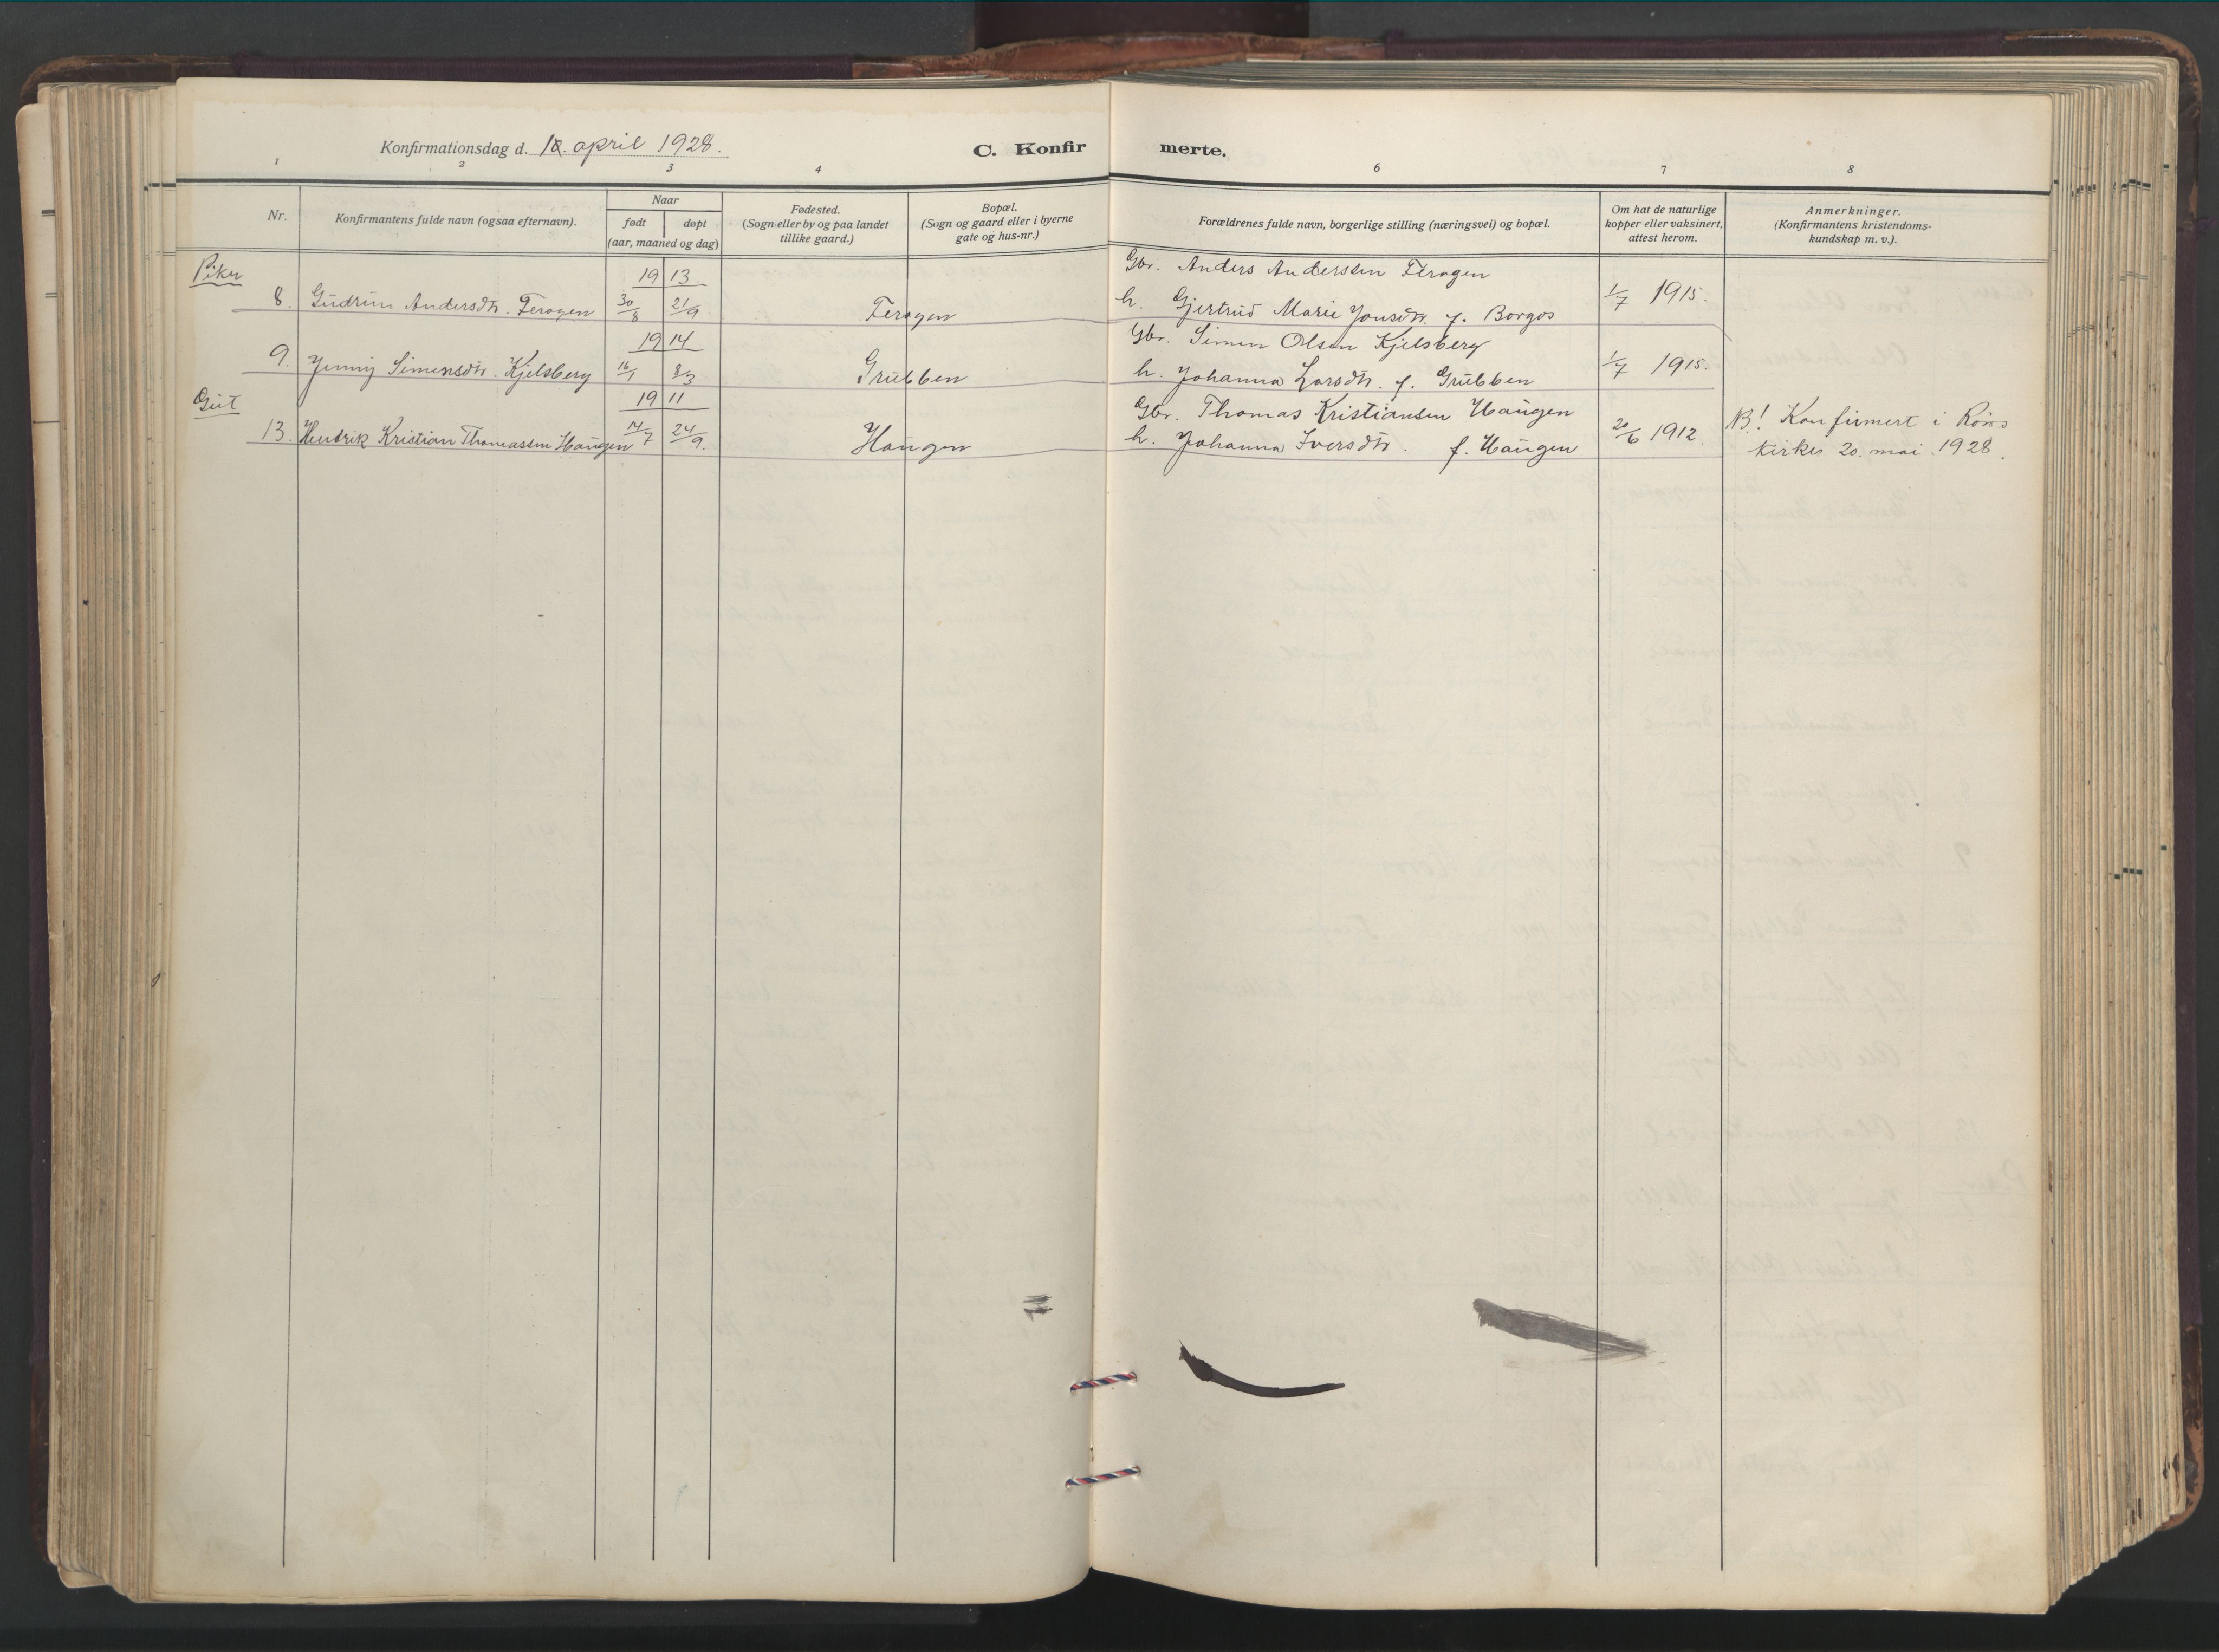 Konfirmationsdag d. april 1928.
C. Konfir merte.
1 2 3 4 6 7 8
Nr.
Konfirmantens fulde navn (ogsaa efternavn).
Naar
født døpt
(aar, maaned og dag)
Fødested.
(Sogn eller by og paa landet
tillike gaard.)
Bopæl.
(Sogn og gaard eller i byerne
gate og hus-nr.)
Forældrenes fulde navn, borgerlige stilling (næringsvei) og bopæl.
Om hat de naturlige
kopper eller vaksinert,
attest herom.
Anmerkninger.
(Konfirmantens kristendoms-
kundskap m. v.).
Piker 19 13. Gbr. Anders Anderssen Feragen
8. Gudrun Andersdtr. Feragen 30/8 21/9 Feragen h. Gjertrud Marie Jonsdtr. f. Borgos 1/7 1915.
19 14 Gbr. Simen Olsen Kjelsberg
9. Jenny Simensdtr. Kjelsberg 16/1 8/3 Grubben h. Johanna Larsdtr. f. Grubben 1/7 1915.
Gut 19 11 Gbr. Thomas Kristiansen Haugen
13. Hendrik Kristian Thomassen Haugen 14/7 24/9. Haugen h. Johanna Iversdtr. f. Haugen 20/6 1912. NB! Konfirmert i Røros
kirke 20. mai 1928.